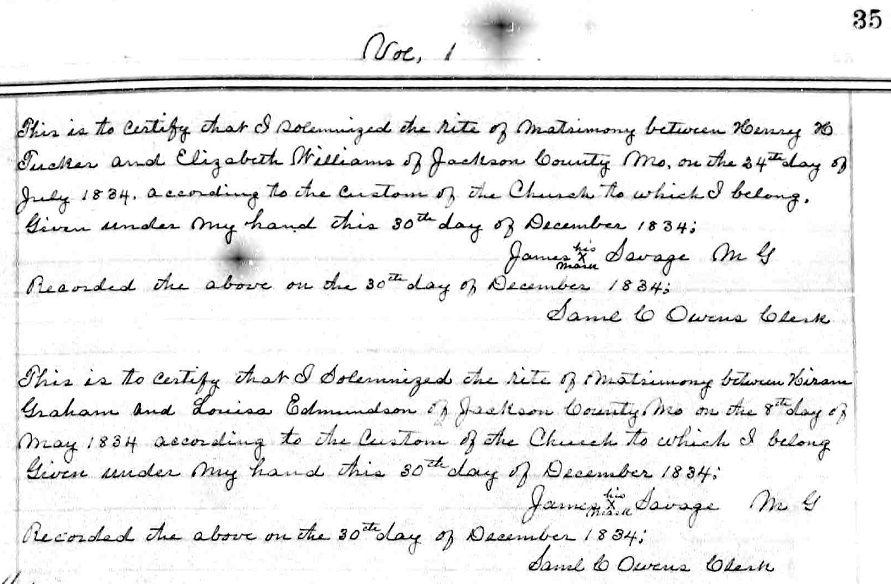 35
Voc. 1
This is to certify that I solemnized the rite of Matrimony between Henry H
Tucker and Elizabeth Williams of Jackson County Mo, on the 24th day of
July 1834. according to the custom of the Church to which I belong.
Given under my hand this 30th day of December 1834;
James his X mark Savage M G
Recorded the above on the 30th day of December 1834;
Saml C Owens Clerk
This is to certify that I Solemnized the rite of Matrimony between Hiram
Graham and Louisa Edmundson of Jackson County Mo on the 8th day of
May 1834 according to the Custom of the Church to which I belong
Given under my hand this 30th day of December 1834;
James his X mark Savage M G
Recorded the above on the 30th day of December 1834;
Saml C Owens Clerk